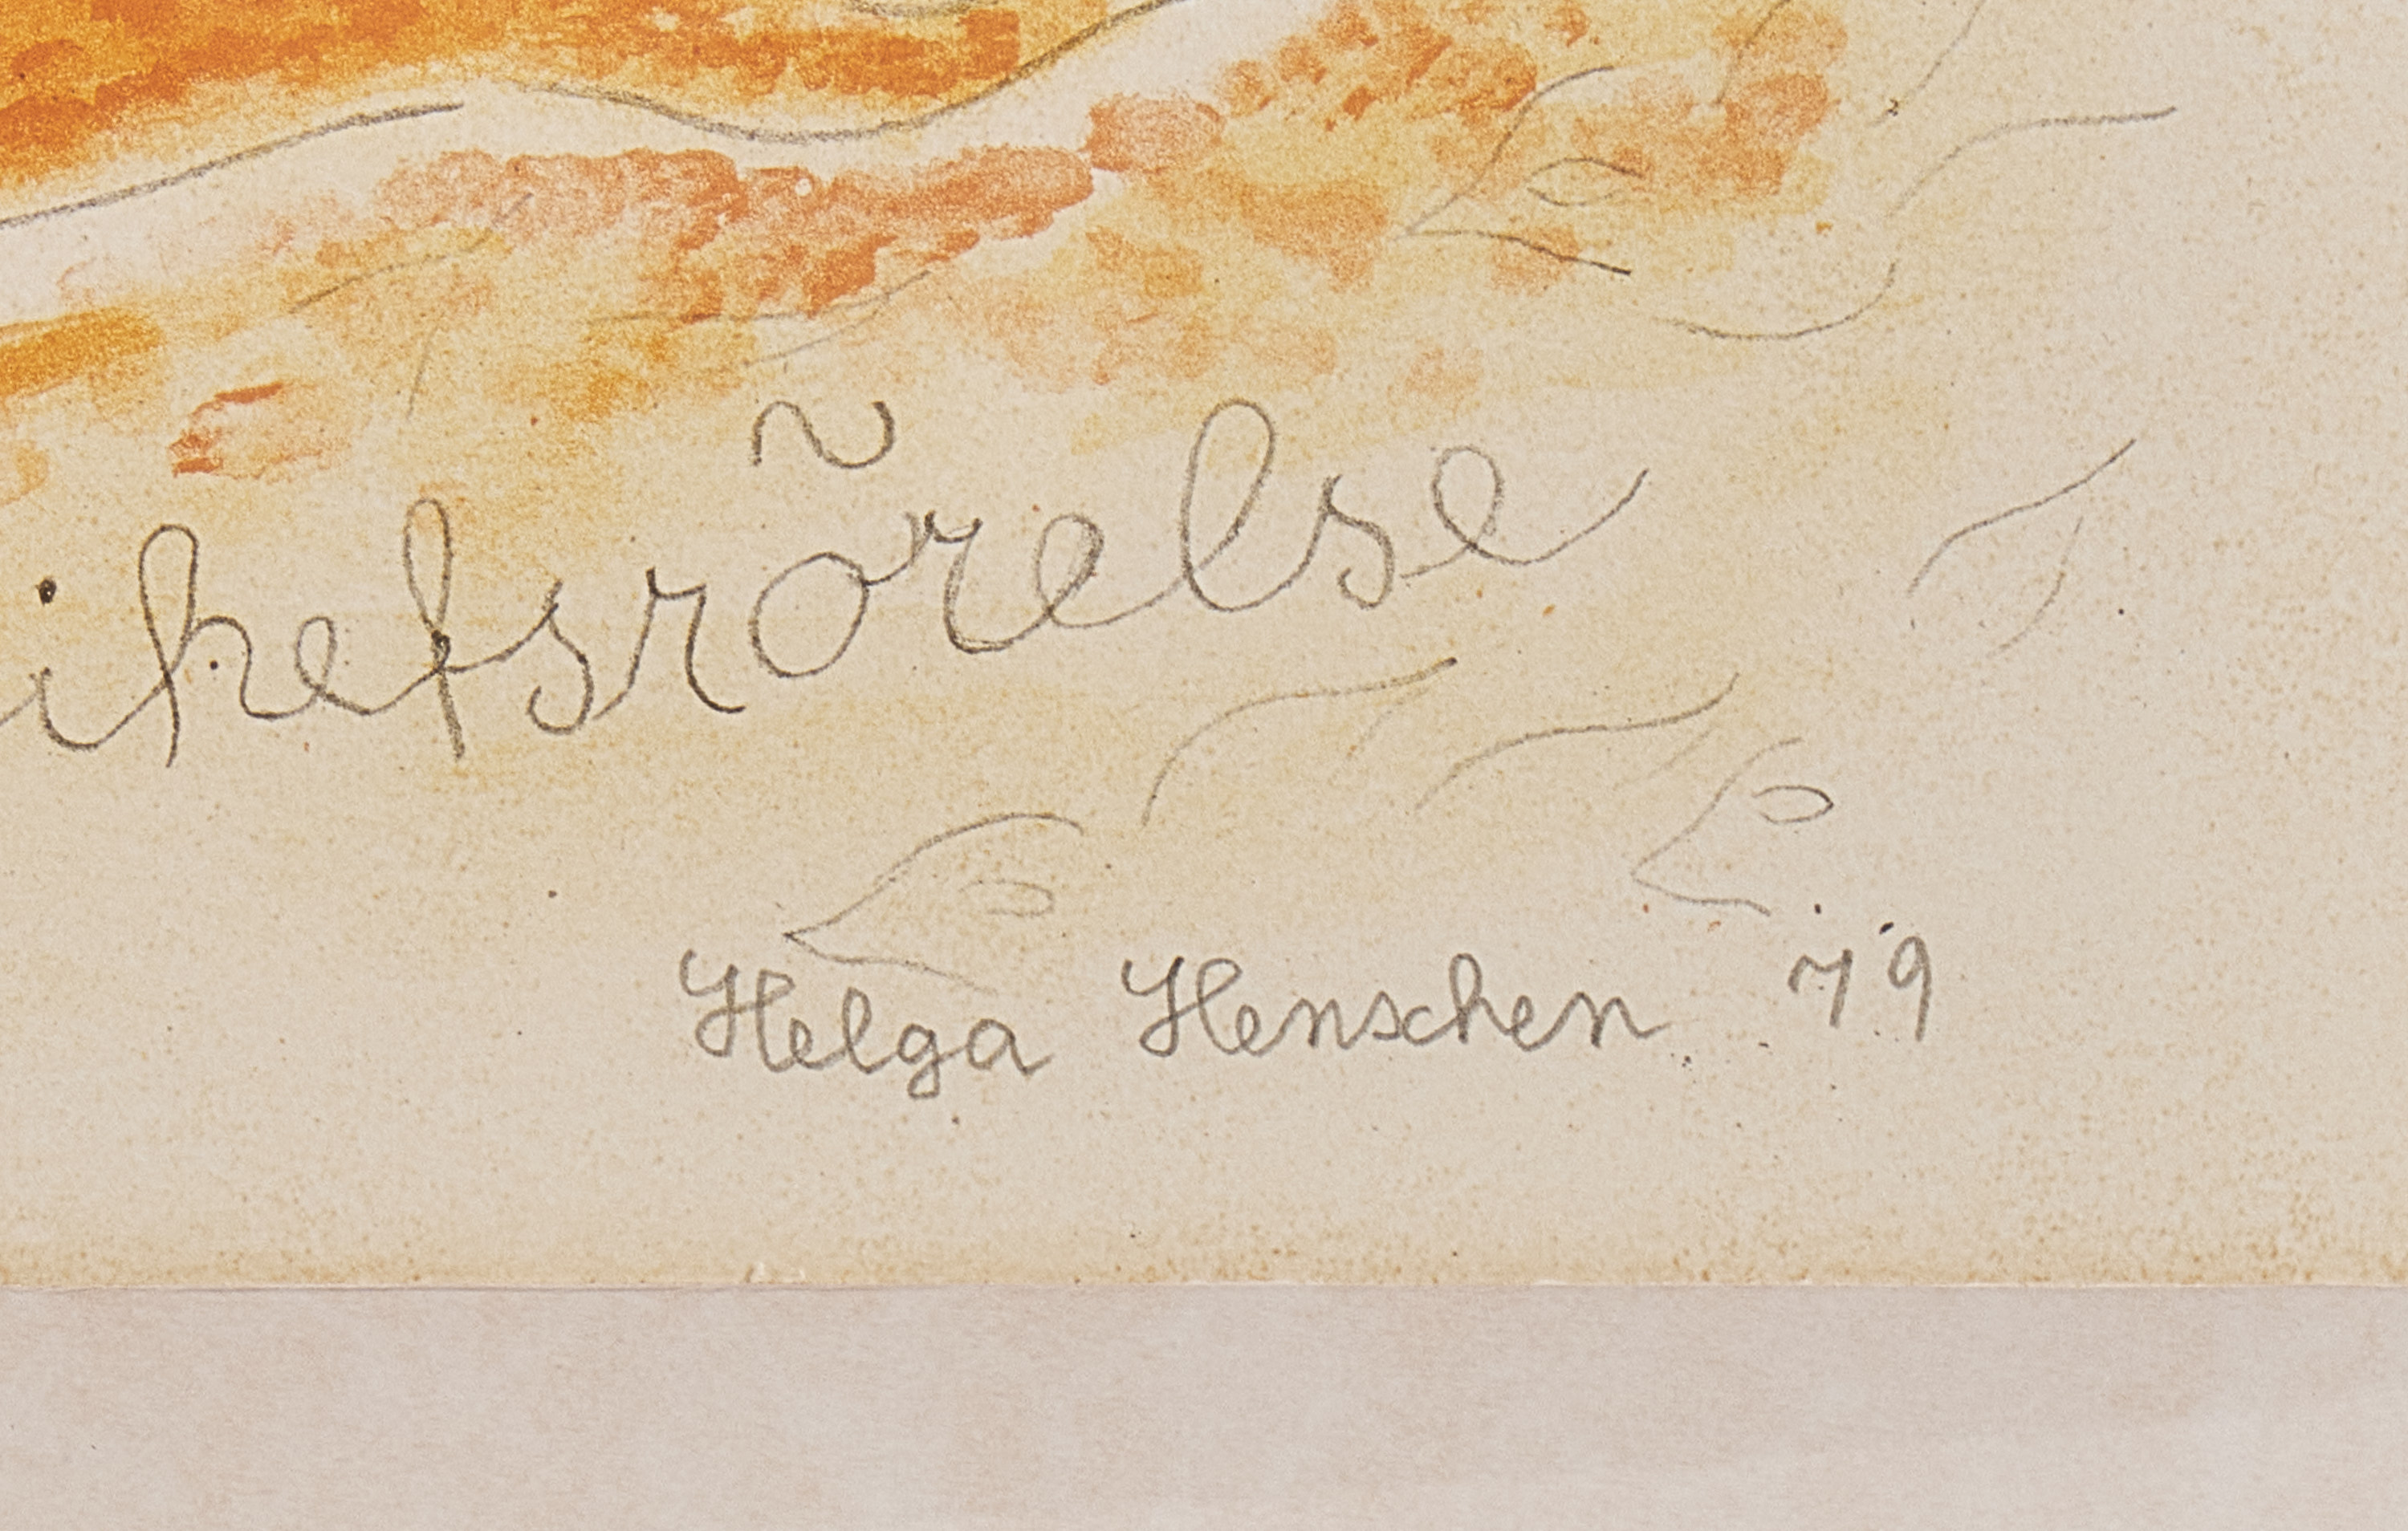 ihetsrörelse
Helga Henschen 79